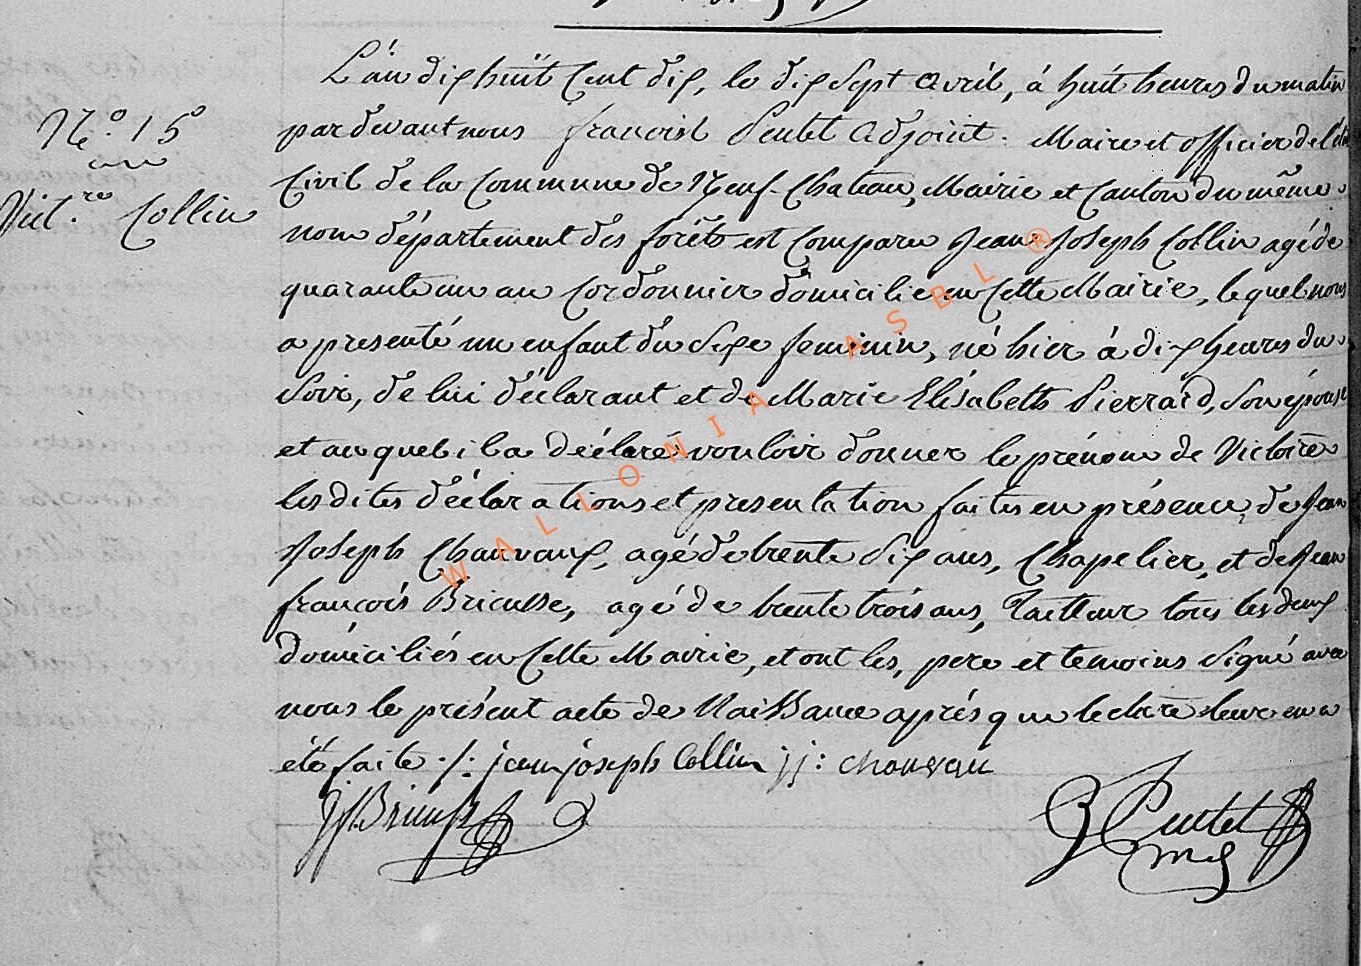 L'án dix huit Cent dix, le dix Sept avril, à huit heures du matin
No. 15
pardevant nous françois Pentet adjoint. Maire et officier de l'état
Civil de la Commune de Neuf-Chateau, Mairie et Canton du même
Vict.re Collin
nom département des forêts est Comparu Jean Joseph Collin agé de
quarante un an Cordonnier domicilié en Cette Mairie, lequel nous
a presenté un enfant du Sexe feminin, né hier à dix heures du
Soir, de lui déclarant et de Marie Elisabeth Pierrard, Son épouse
et auquel il a déclaré vouloir donner le prénom de Victoire
les dites déclarations et presentation faites en présence de Jean
Joseph Chauvaux, agé de trente Six ans, Chapelier, et de Jean
françois Bricusse, agé de trente trois ans, Tailleur tous les deux
domiciliés en Cette Mairie, et ont les, pere et temoins Signé avec
nous le présent acte de Naissance après que lecture leur en a
été faite ./. jean joseph Collin jj: chauvau
JfBricusse
Pentet
WALLONIA ASBL ®